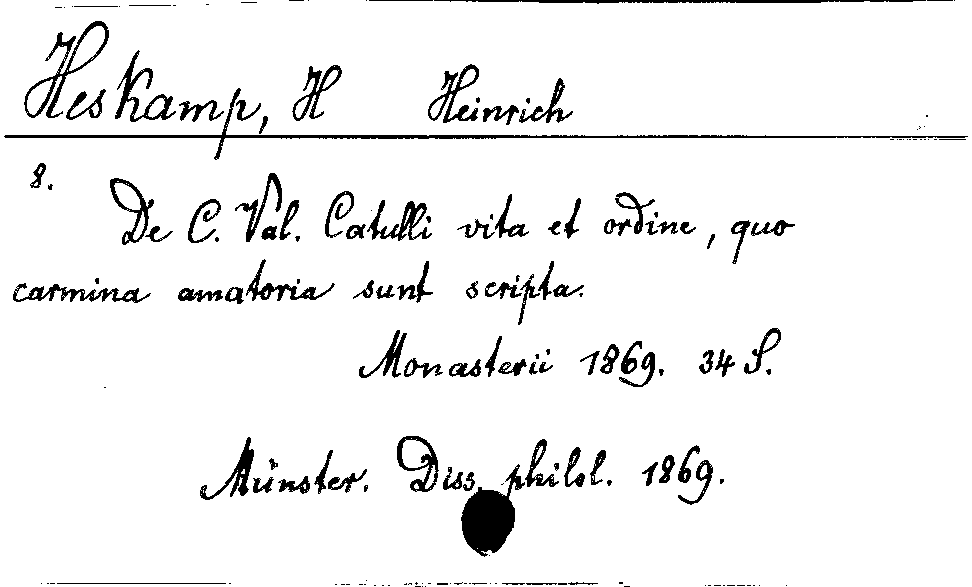 Heskamp, H Heinrich
8.
De C. Val. Catulli vita et ordine, quo
carmina amatoria sunt scripta.
Monasterii 1869. 34 S.
Münster. Diss. philol. 1869.